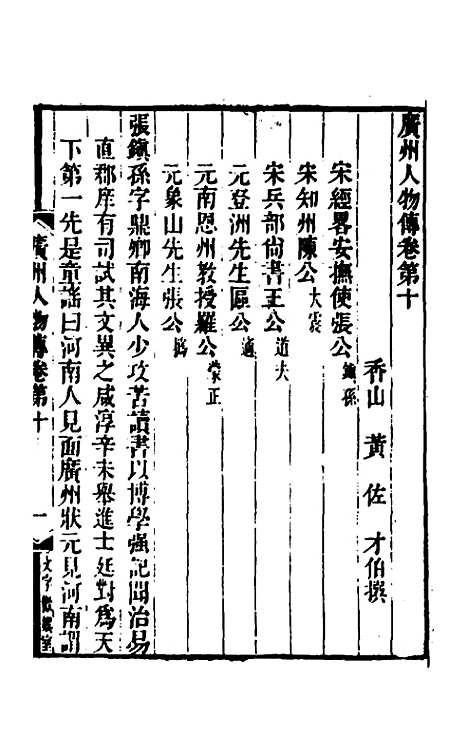 廣州人物傳卷第十
香山 黃 佐 才伯撰
宋經畧安撫使張公鎮孫
宋知州陳公大震
宋兵部尙書王公道夫
元登洲先生區公適
元南恩州教授羅公蒙正
元象山先生張公
張鎮孫字鼎卿南海人少攻苦讀書以博學强記聞治易
直郡庠有司試其文異之咸淳辛未舉進士廷對爲天
下第一先是童謠曰河南人見面廣州狀元見河南謂
廣州人物傳卷第十
一
文字歡娛室